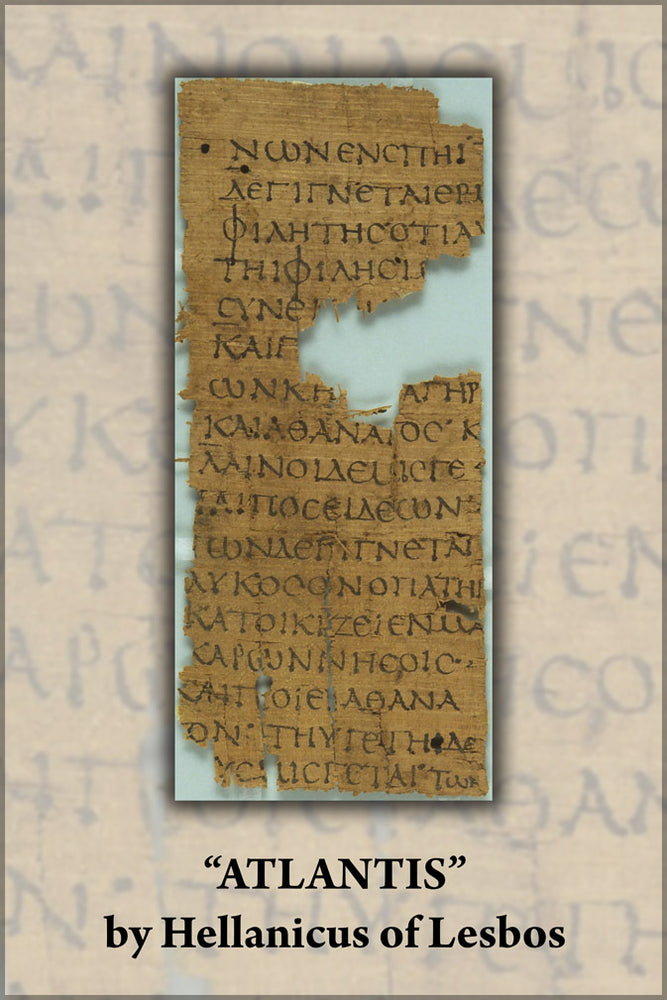 ΝωΝ ΕΝ CΠΗΙ
ΔΕ ΓΙΓΝΕΤΑΙ ΕΡ
ΦΙΛΗΤΗC ΟΤΙ Α
ΤΗΙ ΦΙΛΗCΙ
CΥΝΕ
ΚΑΙ
ωΝ ΚΗ ΑΓΗΡ
ΚΑΙ ΑΘΑΝΑΤΟC· Κ
ΛΑΙΝΟΙ ΔΕ ΜΙCΓΕ
ΤΑΙ ΠΟCΕΙΔΕωΝ·
ΤωΝ ΔΕ ΓΙΓΝΕΤΑΙ
ΛΥΚΟC ΟΝ Ο ΠΑΤΗ
ΚΑΤΟΙΚΙΖΕΙ ΕΝ ΜΑ
ΚΑΡωΝ ΝΗCΟΙC·
ΚΑΙ ΠΟΙΕΙ ΑΘΑΝΑ
ΟΝ· ΤΗΥΓΕΤΗΙ ΔΕ
ΥC ΜΙCΓΕΤΑΙ· ΤωΝ
“ATLANTIS”
by Hellanicus of Lesbos